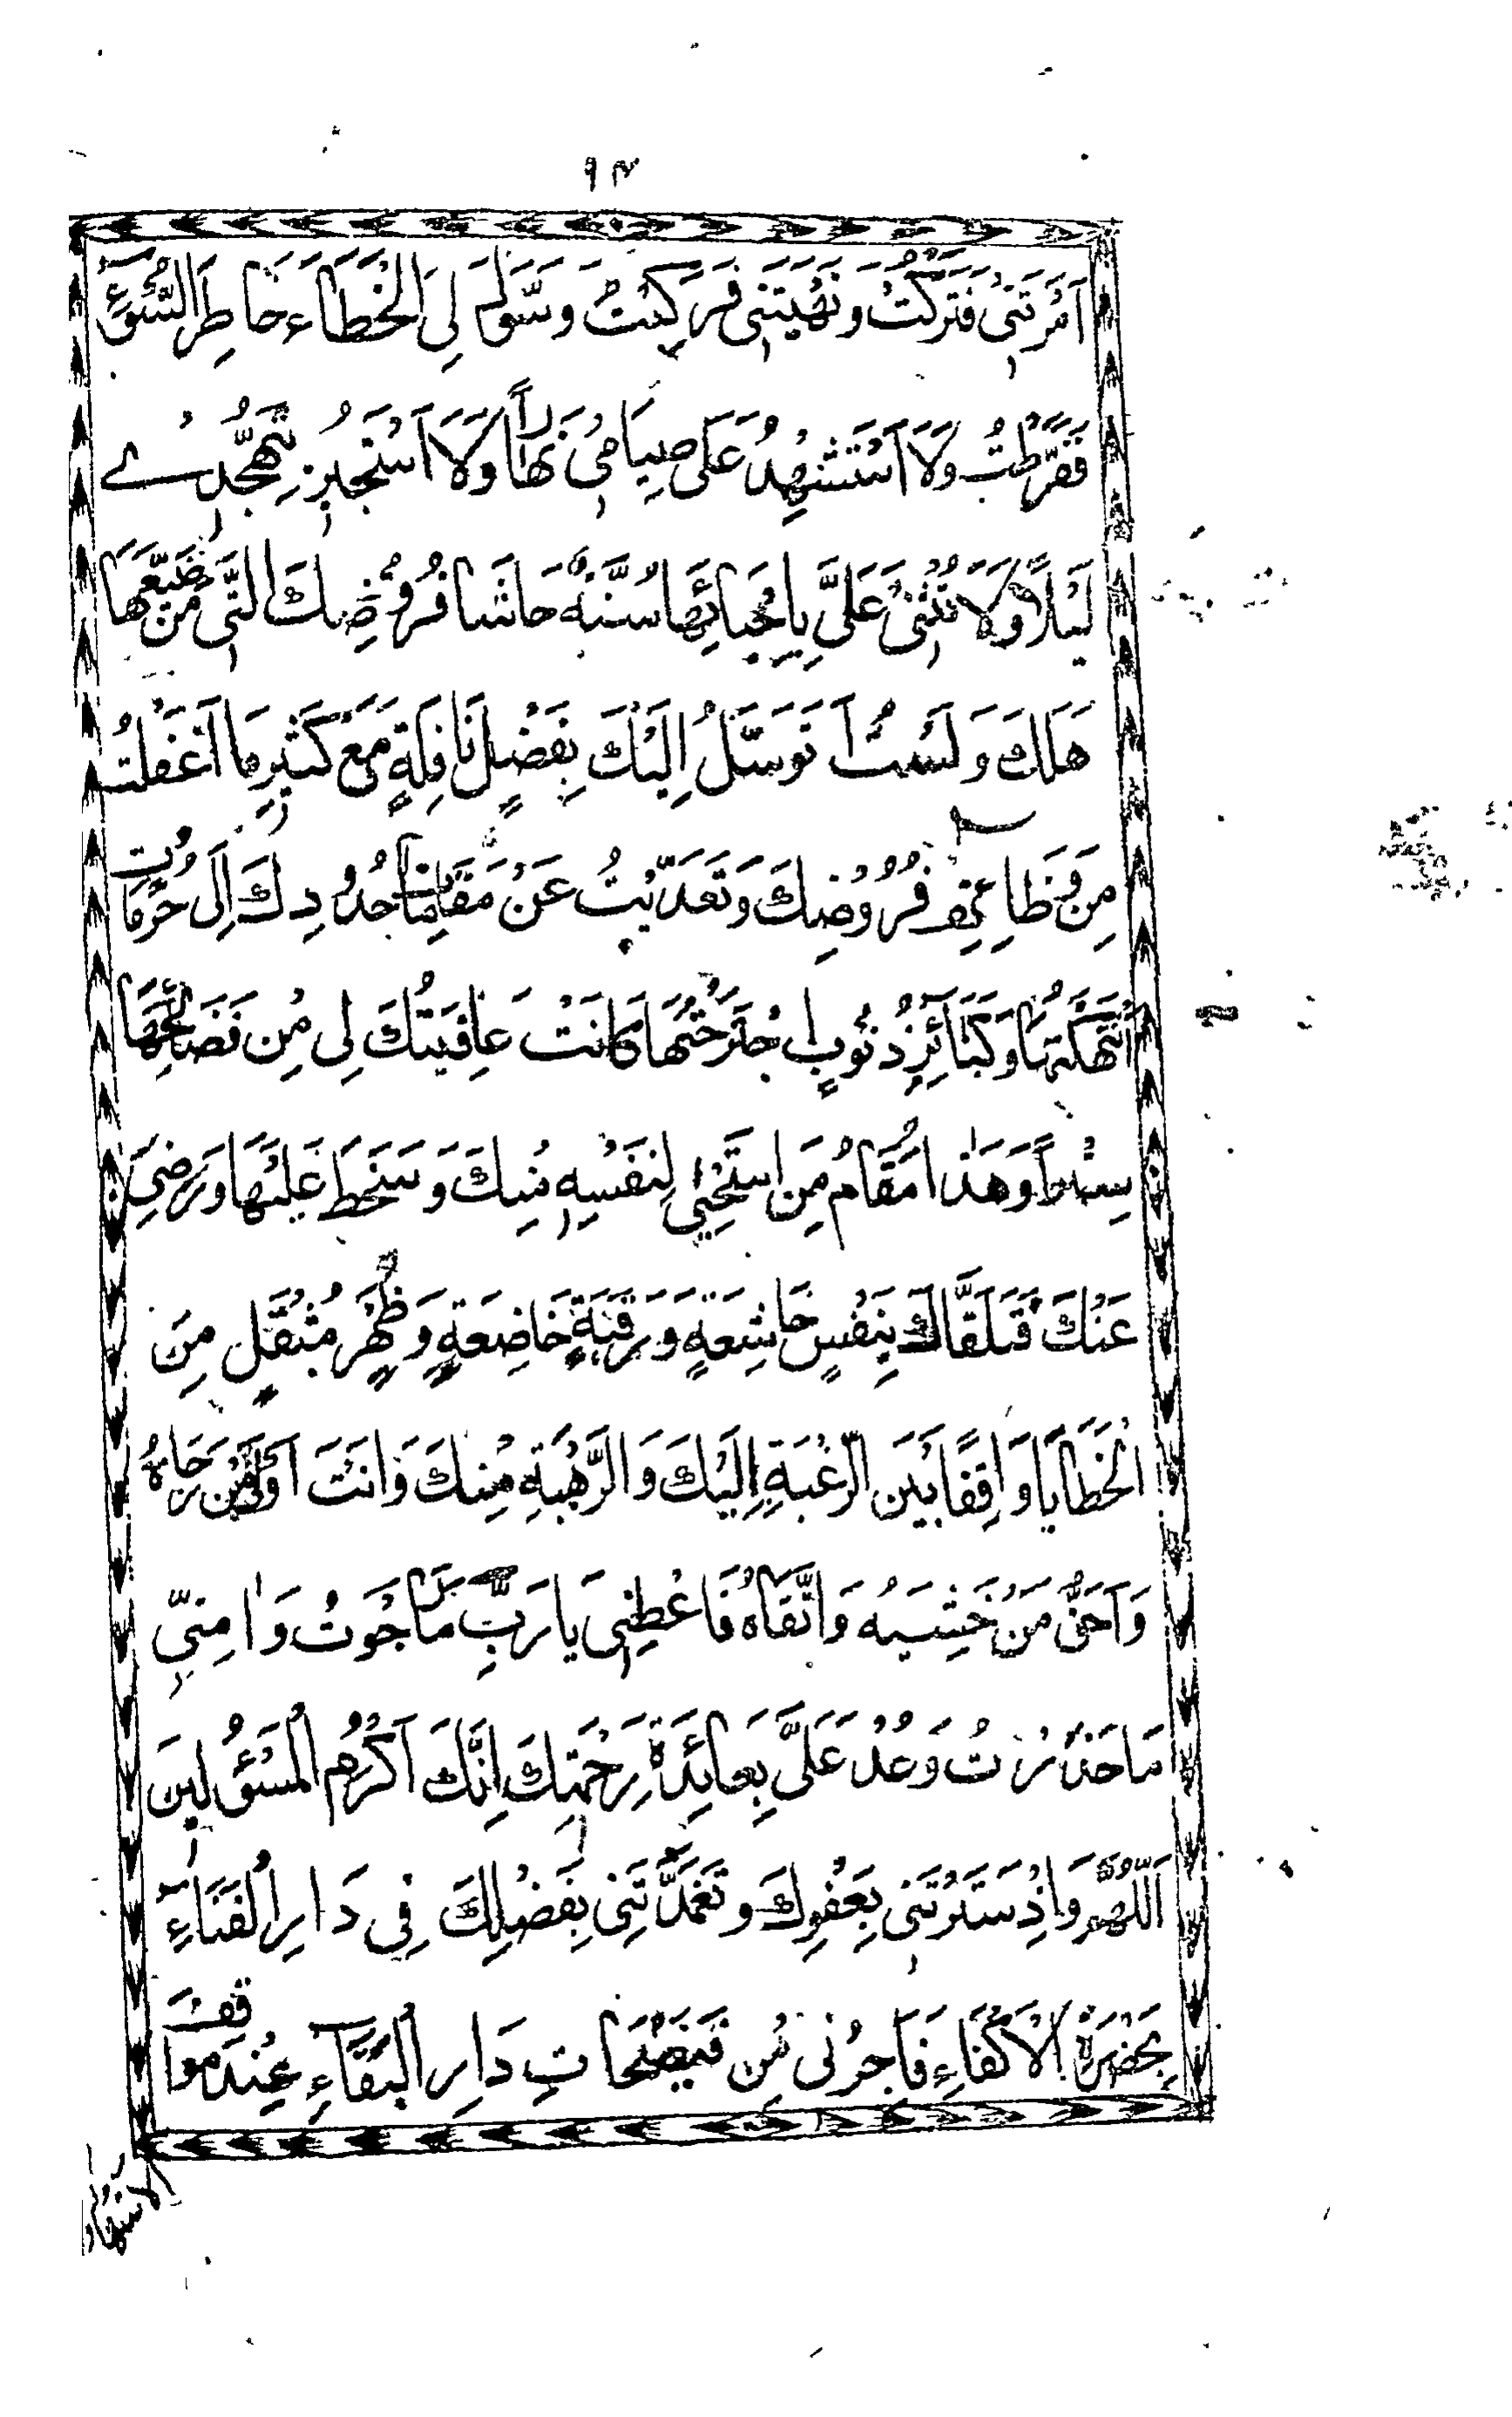 ٩٣
اَمَرْتَنِي فَتَرَكْتُ وَنَهَيْتَنِي فَرَكِبْتُ وَسَوَّلَ لِيَ الْخَطَاءَ خَاطِرُ السُّوْءِ
فَفَرَّطْتُ وَلَا اَسْتَشْهِدُ عَلٰى صِيَامِي نَهَارًا وَلَا اَسْتَجِيْرُ بِتَهَجُّدِي
لَيْلًا وَلَا تُثْنِي عَلَيَّ بِاِحْيَائِهَا سُنَّةٌ حَاشَا فُرُوْضِكَ الَّتِي مَنْ ضَيَّعَهَا
هَلَكَ وَلَسْتُ اَتَوَسَّلُ اِلَيْكَ بِفَضْلِ نَافِلَةٍ مَعَ كَثِيْرِ مَا اَغْفَلْتُ
مِنْ وَظَائِفِ فُرُوْضِكَ وَتَعَدَّيْتُ عَنْ مَقَامَاتِ حُدُوْدِكَ اِلٰى حُرُمَاتٍ
اِنْتَهَكْتُهَا وَكَبَائِرِ ذُنُوْبٍ اجْتَرَحْتُهَا كَانَتْ عَافِيَتُكَ لِي مِنْ فَضَائِحِهَا
سِتْرًا وَهٰذَا مَقَامُ مَنِ اسْتَحْيٰى لِنَفْسِهِ مِنْكَ وَسَخِطَ عَلَيْهَا وَرَضِيَ
عَنْكَ فَتَلَقَّاكَ بِنَفْسٍ خَاشِعَةٍ وَرَقَبَةٍ خَاضِعَةٍ وَظَهْرٍ مُثْقَلٍ مِنَ
الْخَطَايَا وَاقِفًا بَيْنَ الرَّغْبَةِ اِلَيْكَ وَالرَّهْبَةِ مِنْكَ وَاَنْتَ اَوْلٰى مَنْ رَجَاهُ
وَاَحَقُّ مَنْ خَشِيَهُ وَاتَّقَاهُ فَاَعْطِنِي يَا رَبِّ مَا رَجَوْتُ وَاٰمِنِّي
مَا حَذِرْتُ وَعُدْ عَلَيَّ بِعَائِدَةِ رَحْمَتِكَ اِنَّكَ اَكْرَمُ الْمَسْئُوْلِيْنَ
اَللّٰهُمَّ وَاِذْ سَتَرْتَنِي بِعَفْوِكَ وَتَغَمَّدْتَنِي بِفَضْلِكَ فِي دَارِ الْفَنَاءِ
بِحَضْرَةِ الْاَكْفَاءِ فَاَجِرْنِي مِنْ فَضِيْحَاتِ دَارِ الْبَقَاءِ عِنْدَ مَوَاقِفِ
الاشهاد